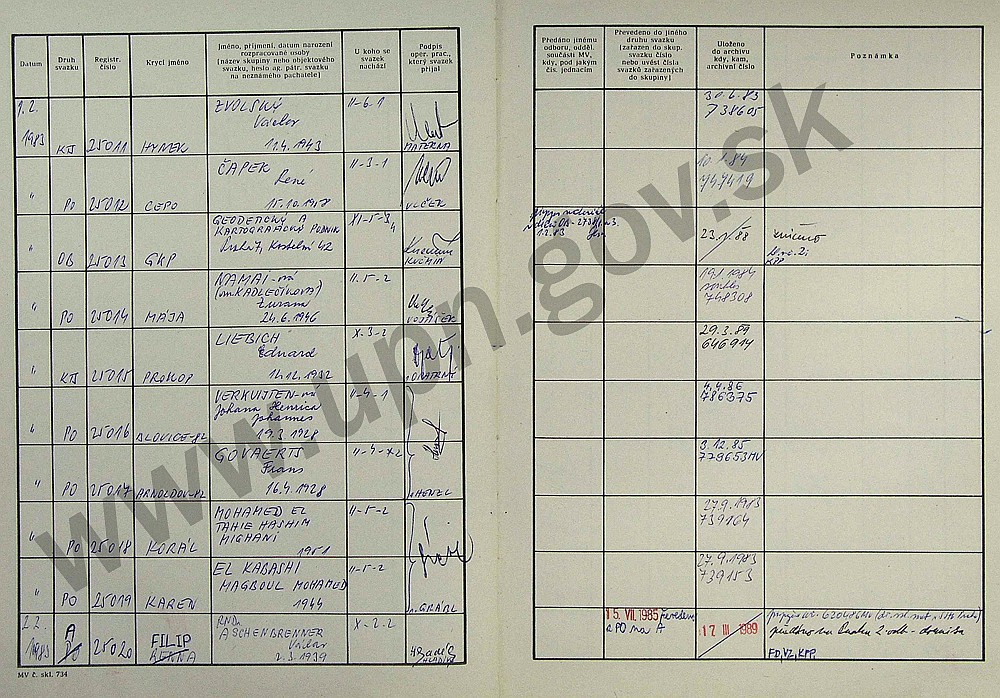 Datum
Druh svazku
Registr. číslo
Krycí jméno
Jméno, příjmení, datum narození
rozpracované osoby
(název skupiny nebo objektového
svazku, heslo ag. pátr. svazku
na neznámého pachatele)
U koho se
svazek
nachází
Podpis
oper. prac.,
který svazek
přijal
Předáno jinému
odboru, odděl.
součásti MV,
kdy, pod jakým
čís. jednacím
Převedeno do jiného
druhu svazku
(zařazen do skup.
svazku číslo
nebo uvést čísla
svazků zařazených
do skupiny)
Uloženo
do archivu
kdy, kam,
archivní číslo
Poznámka
1.2.
1983 KTS 25011 HYNEK
ZVOLSKÝ
Václav
11.4.1943
II-6-1
MATERNA
30.6.83
738605
" PO 25012 CEPO
ČAPEK
René
15.10.1978
II-3-1
VLČEK
747419
" OB 25013 GKP
GEODETICKÝ A
KARTOGRAFICKÝ PODNIK
Praha 7, Kostelní 42
XI-5-3
4
1.2.83
zničeno
" PO 25014 MÁJA
NAMAI-ná
Zuzana
24.6.1946
II-5-2
VOJTÍŠEK
748308
" KTS 25015 PROKOP
LIEBICH
Eduard
14.12.1932
X-3-2
OPATRNÝ
29.3.89
646914
" PO 25016 ALOVICE-82
VERKUIJTEN-ná
Johana Henrica
Johannes
19.3.1928
II-4-1
4.4.86
786375
" PO 25017 ARNOLDOV-82
GOVAERTS
Frans
16.4.1928
II-4-x2
HENZL
3.12.85
779653 MV
" PO 25018 KORÁL
MOHAMED EL
TAHIE HASHIM
MIGHANI
1951
II-5-2
27.9.1983
739164
" PO 25019 KAREN
EL KABASHI
MAGBOUL MOHAMED
1944
II-5-2
GRÁPL
27.9.1983
739153
2.2.
1983 A
PO 25020 FILIP
RNDr.
ASCHENBRENNER
Václav
2.3.1939
X-2-2
15. VII. 1985 převedeno
z PO na A
17 III 1989
FO, VZ, KPP.
MV č. skl. 734
www.upn.gov.sk